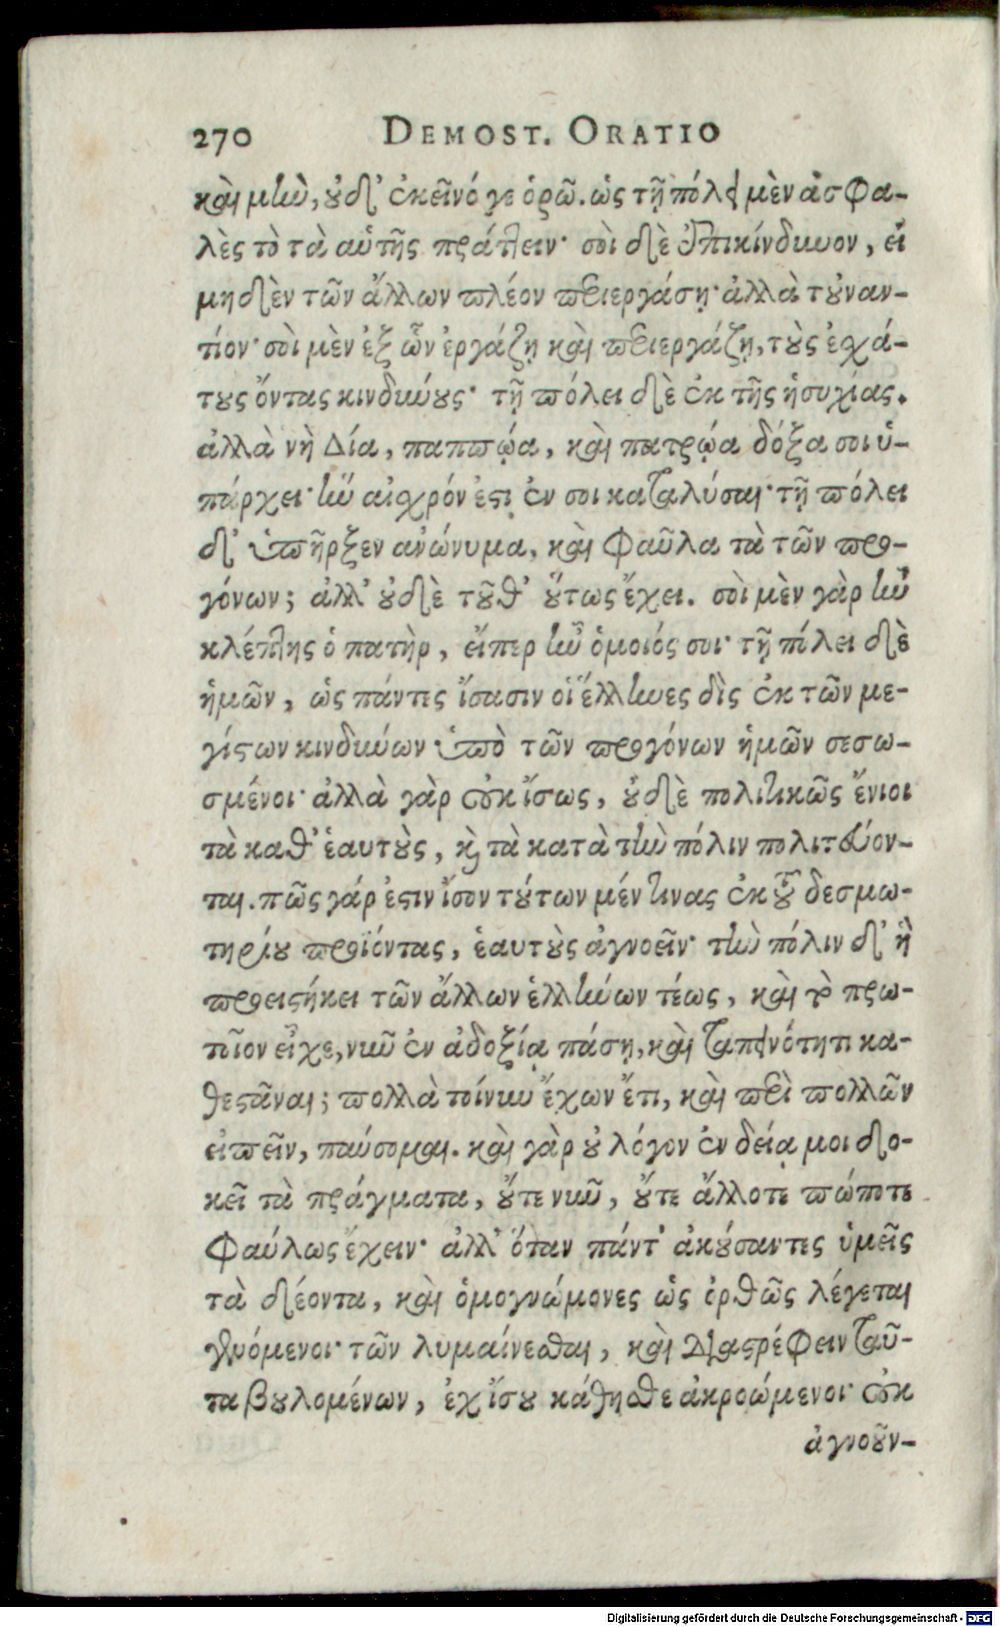 270 DEMOST. ORATIO
καὶ μὴν, οὐδ' ἐκεῖνό γε ὁρῶ. ὡς τῇ πόλει μὲν ἀσφα-
λὲς τὸ τὰ αὑτῆς πράττειν· σοὶ δὲ ἐπικίνδυνον, εἰ
μηδὲν τῶν ἄλλων πλέον περιεργάσῃ· ἀλλὰ τοὐναν-
τίον· σοὶ μὲν ἐξ ὧν ἐργάζῃ καὶ περιεργάζῃ, τοὺς ἐσχά-
τους ὄντας κινδύνους· τῇ πόλει δὲ ἐκ τῆς ἡσυχίας.
ἀλλὰ νὴ Δία, παππῴα, καὶ πατρῴα δόξα σοι ὑ-
πάρχει· ἣν αἰσχρόν ἐστι ἐν σοι καταλύσαι· τῇ πόλει
δ' ὑπῆρξεν ἀνώνυμα, καὶ φαῦλα τὰ τῶν προ-
γόνων; ἀλλ' οὐδὲ τοῦθ' οὕτως ἔχει. σοὶ μὲν γὰρ ἦν
κλέπτης ὁ πατὴρ, εἴπερ ἦν ὁμοιός σοι· τῇ πόλει δὲ
ἡμῶν, ὡς πάντες ἴσασιν οἱ ἕλληνες δὶς ἐκ τῶν με-
γίστων κινδύνων ὑπὸ τῶν προγόνων ἡμῶν σεσω-
σμένοι· ἀλλὰ γὰρ οὐκ ἴσως, οὐδὲ πολιτικῶς ἔνιοι
τὰ καθ' ἑαυτοὺς, καὶ τὰ κατὰ τὴν πόλιν πολιτεύον-
ται. πῶς γάρ ἐστιν ἴσον τούτων μέν τινας ἐκ τοῦ δεσμω-
τηρίου προϊόντας, ἑαυτοὺς ἀγνοεῖν· τὴν πόλιν δ' ἣ
προειστήκει τῶν ἄλλων ἑλλήνων τέως, καὶ τὸ πρω-
τεῖον εἶχε, νῦν ἐν ἀδοξίᾳ πάσῃ, καὶ ταπεινότητι κα-
θεστᾶναι; πολλὰ τοίνυν ἔχων ἔτι, καὶ περὶ πολλῶν
εἰπεῖν, παύσομαι. καὶ γὰρ οὐ λόγον ἐνδείᾳ μοι δο-
κεῖ τὰ πράγματα, οὔτε νῦν, οὔτε ἄλλοτε πώποτε
φαύλως ἔχειν· ἀλλ' ὅταν πάντ' ἀκούσαντες ὑμεῖς
τὰ δέοντα, καὶ ὁμογνώμονες ὡς ὀρθῶς λέγεται
γενόμενοι· τῶν λυμαίνεσθαι, καὶ διαστρέφειν ταῦ-
τα βουλομένων, ἐξίσου κάθησθε ἀκροώμενοι· οὐκ
ἀγνοοῦν-
Digitalisierung gefördert durch die Deutsche Forschungsgemeinschaft - DFG